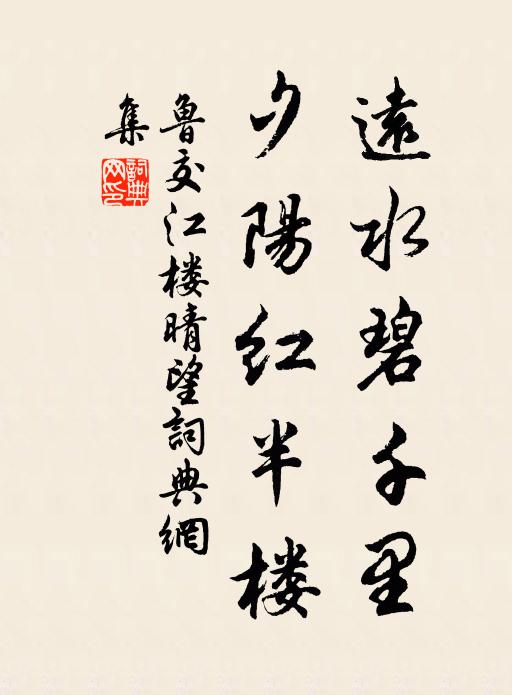 遠水碧千里
夕陽红半楼
魯交江楼晴望詞典網
集
詞典
网印